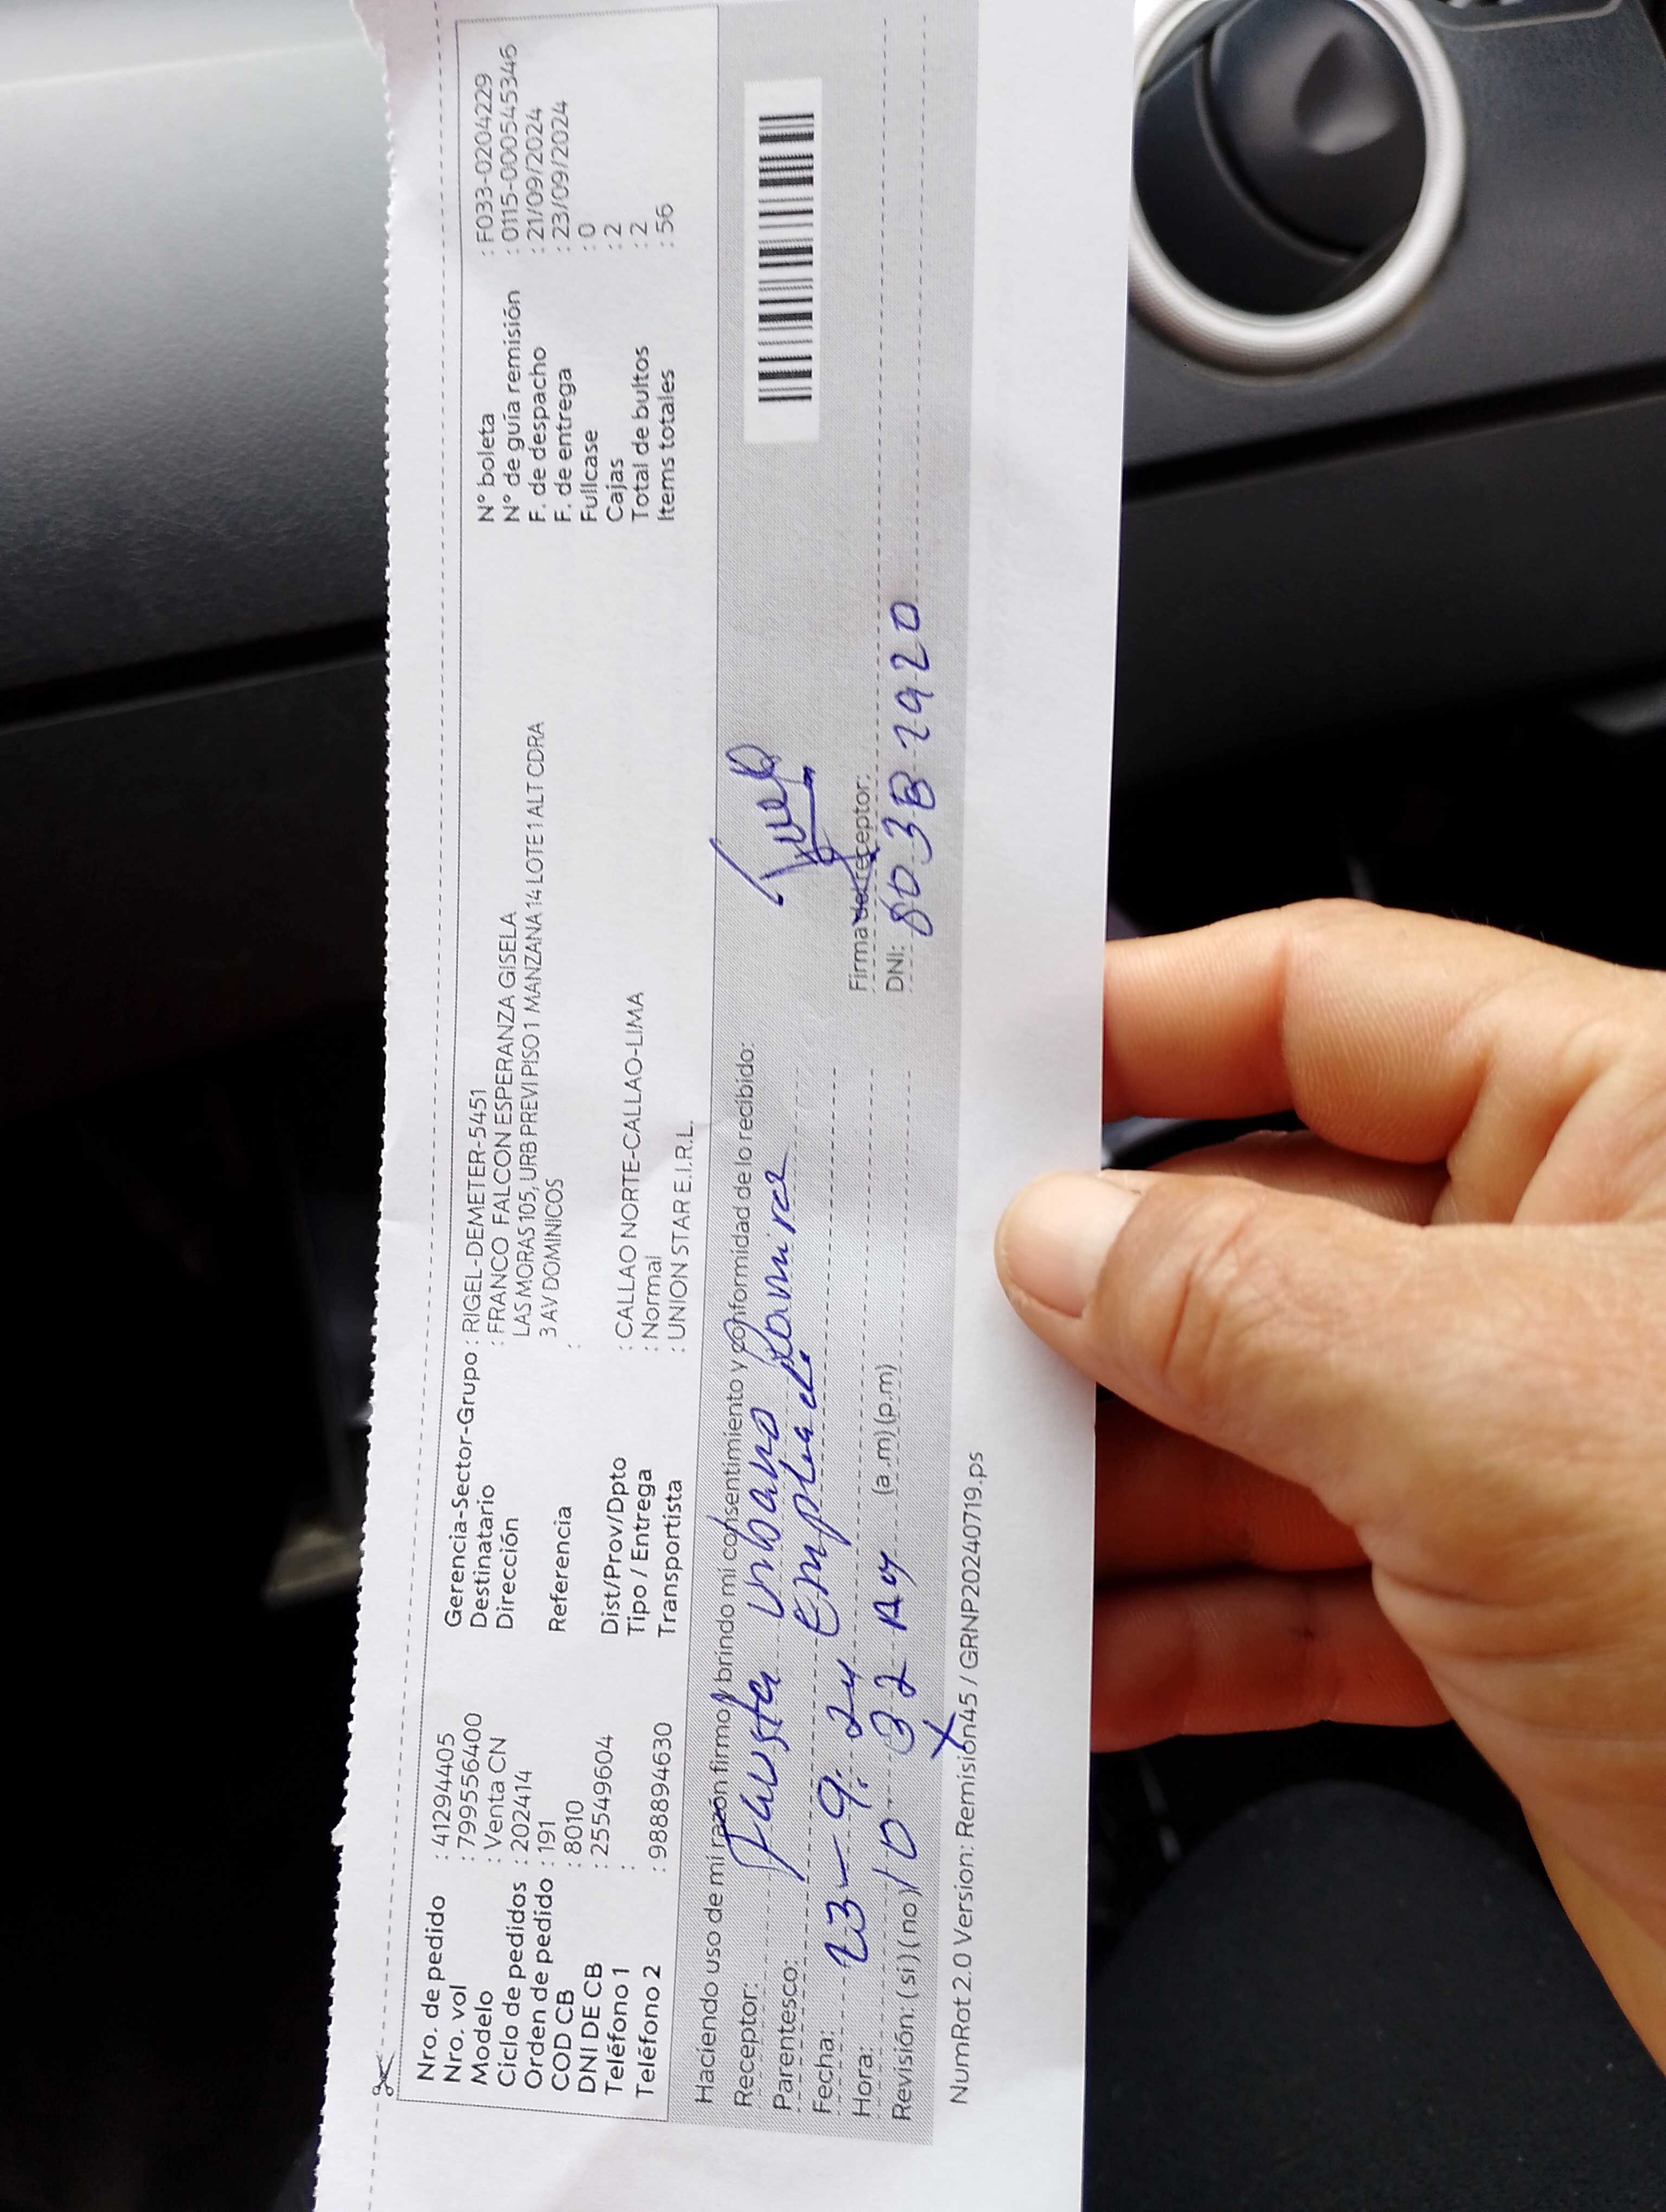 Nro. de pedido : 41294405
Nro. vol : 799556400
Modelo : Venta CN
Ciclo de pedidos : 202414
Orden de pedido : 191
COD CB : 8010
DNI DE CB : 25549604
Teléfono 1 :
Teléfono 2 : 988894630
Gerencia-Sector-Grupo : RIGEL-DEMETER-5451
Destinatario : FRANCO FALCON ESPERANZA GISELA
Dirección LAS MORAS 105, URB PREVI PISO 1 MANZANA 14 LOTE 1 ALT CDRA
3 AV DOMINICOS
Referencia :
Dist/Prov/Dpto : CALLAO NORTE-CALLAO-LIMA
Tipo / Entrega : Normal
Transportista : UNION STAR E.I.R.L.
N° boleta : F033-0204229
N° de guía remisión : 0115-0005453​46
F. de despacho : 21/09/2024
F. de entrega : 23/09/2024
Fullcase : 0
Cajas : 2
Total de bultos : 2
Items totales : 56
Haciendo uso de mi razón firmo y brindo mi consentimiento y conformidad de lo recibido:
Receptor: Fausta Urbano Ramirez
Parentesco: Emplead.
Fecha: 23-9-24
Hora: 10 32 (a.m) (p.m)
Revisión: (si) (no)
Firma del receptor:
DNI: 2920
NumRot 2.0 Version: Remisión45 / GRNP20240719.ps